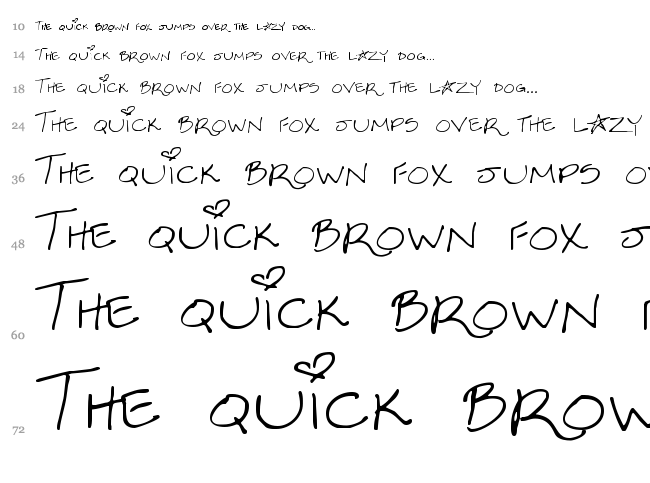 10 THE QUICK BROWN FOX JUMPS OVER THE LAZY DOG...
14 THE QUICK BROWN FOX JUMPS OVER THE LAZY DOG...
18 THE QUICK BROWN FOX JUMPS OVER THE LAZY DOG...
24 THE QUICK BROWN FOX JUMPS OVER THE LAZY
36 THE QUICK BROWN FOX JUMPS OV
48 THE QUICK BROWN FOX J
60 THE QUICK BROWN
72 THE QUICK BROW